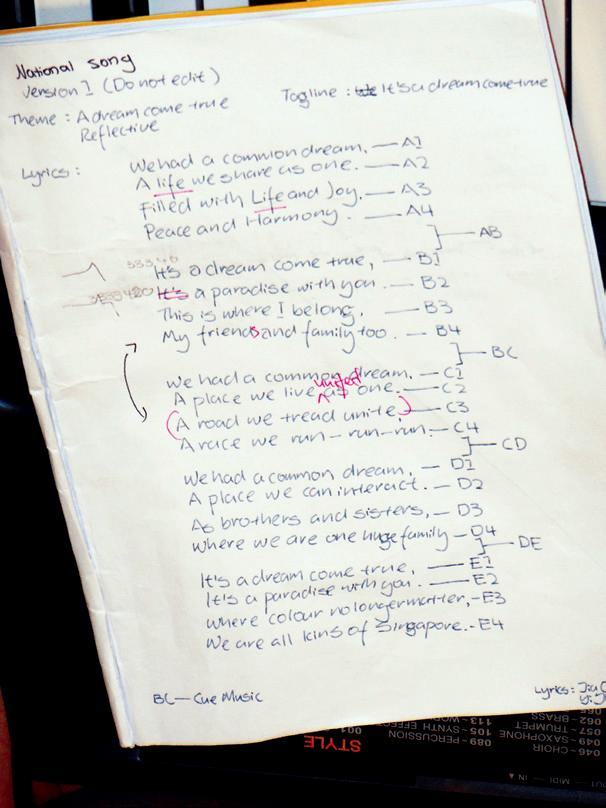 National song
Version 1 (Do not edit)
Theme : A dream come true
Reflective
Tagline : It's a dream come true
Lyrics :
We had a common dream, — A1
A life we share as one. — A2
Filled with Life and Joy. — A3
Peace and Harmony. — A4
AB
It's a dream come true, — B1
It's a paradise with you. — B2
This is where I belong. — B3
My friends and family too. — B4
BC
We had a common dream. — C1
united
A place we live as one. — C2
(A road we tread unite,) — C3
A race we run-run-run. — C4
CD
We had a common dream, — D1
A place we can interact. — D2
As brothers and sisters, — D3
Where we are one huge family — D4
DE
It's a dream come true, — E1
It's a paradise with you. — E2
Where colour no longer matter, — E3
We are all kins of Singapore. - E4
BC — Cue Music
Lyrics:
STYLE
001
089- PERCUSSION
105- SYNTH EFFE
113-
046- CHOIR
049- SAXOPHONE
057- TRUMPET
062- BRASS
MIDI
IN